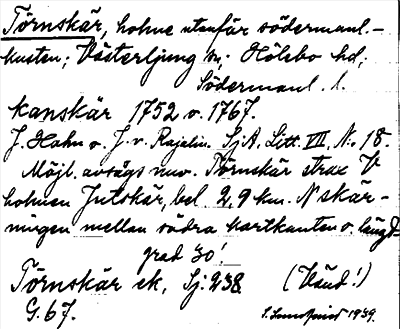 Törnskär, holme utanför södermanl.-
kusten; Västerljung sn; Hölebo hd;
Södermanl. l.
Kanskär 1752 o. 1767.
J. Hahn o. J. v. Rajalin. SjA, Litt. VII, N:o 18.
Möjl. avsågs nuv. Törnskär strax V
holmen Jutskär, bel. 2,9 km. N skär-
ningen mellan södra kartkanten o. längd-
grad 30'.
Törnskär ek. Sj: 238. (Vänd!)
G. 67. 1939.